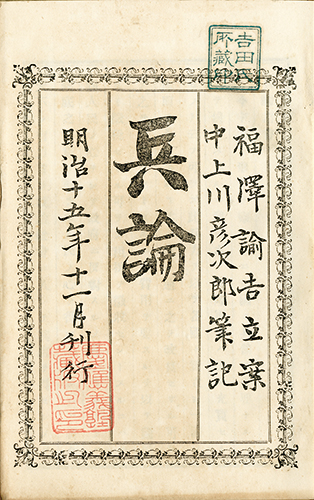 福澤諭吉立案
中上川彦次郎筆記
兵論
明治十五年十一月刊行
吉田氏
所藏印
慶應義塾
藏版之印